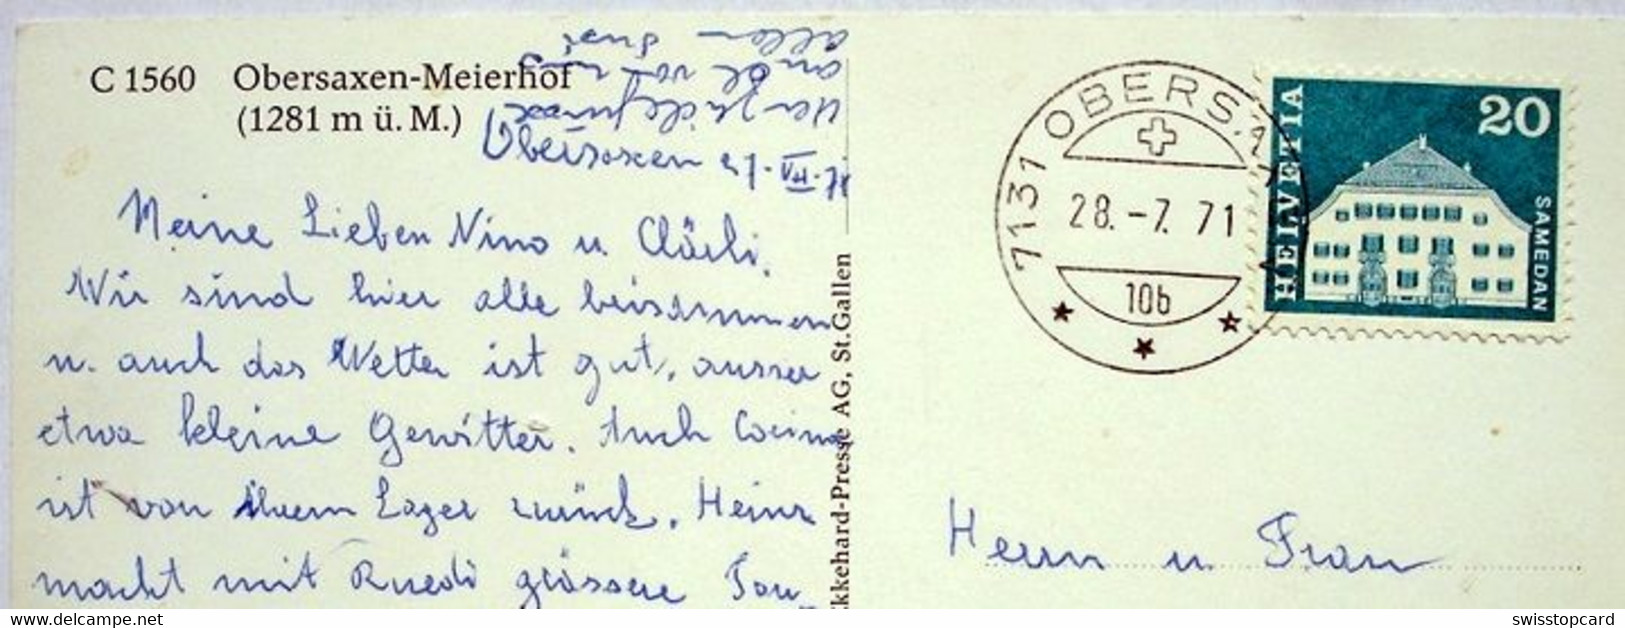 C 1560 Obersaxen-Meierhof
(1281 m ü. M.)
allen Susi
Obersaxen 27.VII.71
Meine Lieben Nino u. Clärli.
Wir sind hier alle beisammen
u. auch das Wetter ist gut, ausser
etwa kleine Gewitter. Auch
ist von ihrem Lager zurück. Heinz
macht mit Ruedi grössere Tou-
Ekkehard-Presse AG, St. Gallen
7131 OBERSA
28.-7.71
10b
HELVETIA
20
SAMEDAN
Herrn u. Frau
https://www.delcampe.net
swisstopcard